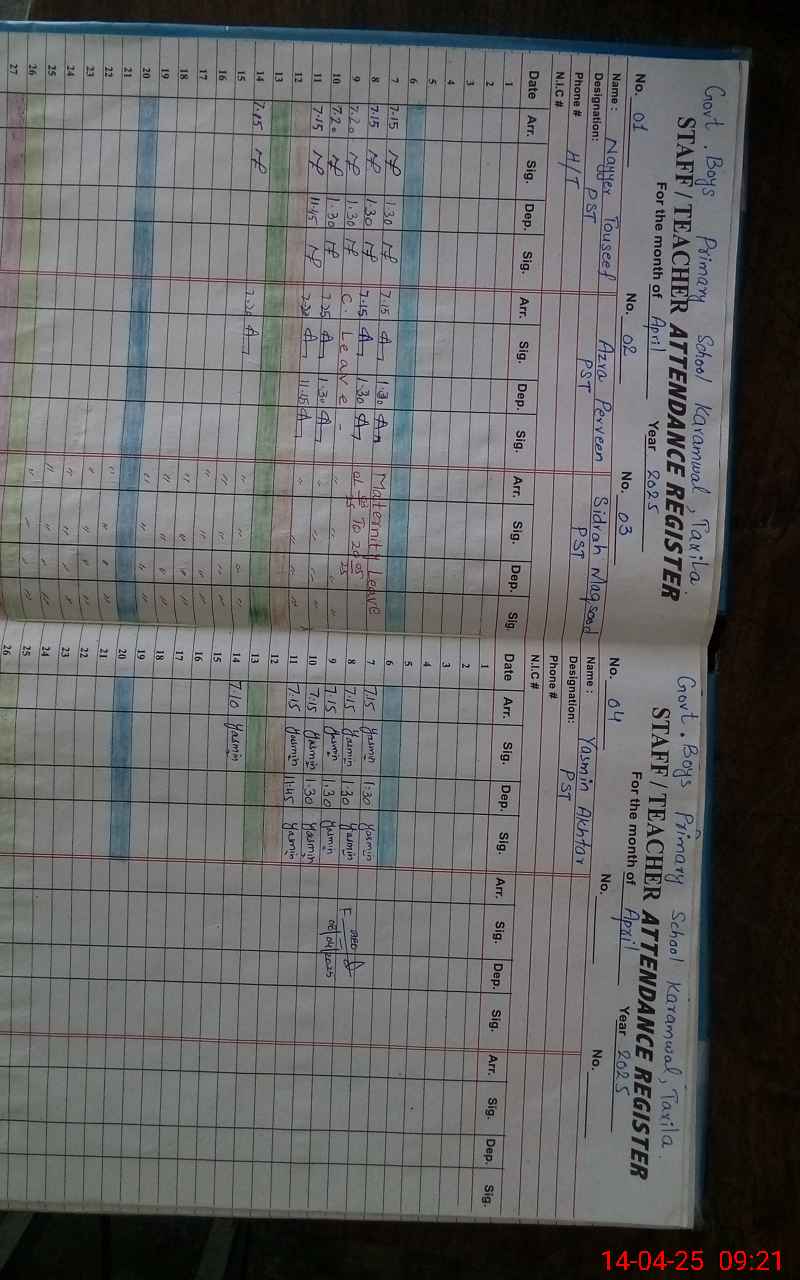 Govt. Boys Primary School Karamwal, Taxila
STAFF / TEACHER ATTENDANCE REGISTER
For the month of April Year 2025
No. 01 No. 02 No. 03
Name : Nayyer Touseef Azra Perveen Sidrah Maqsood
Designation: PST PST PST
Phone # H/T
N.I.C #
Date Arr. Sig. Dep. Sig. Arr. Sig. Dep. Sig. Arr. Sig. Dep. Sig.
1
2
3
4
5
6
7 7.15 1.30 7.15 1.30 Maternity Leave
8 7.15 1.30 7.15 1.30
9 7.20 1.30 C. Leave -
10 7.20 1.30 7.25 1.30 "
11 7.15 11.45 7.20 11.45 " " " "
12
13
14 7.15 7.20 " " " "
15 " " " "
16 " " " "
17 " " " "
18 " " " "
19 " " " "
20 " " " "
21
22 " " " "
23 " " " "
24 " " " "
25 " " " "
26 " " " "
27
Govt. Boys Primary School Karamwal, Taxila.
STAFF / TEACHER ATTENDANCE REGISTER
For the month of April Year 2025
No. 04 No. No.
Name : Yasmin Akhtar
Designation: PST
Phone #
N.I.C #
Date Arr. Sig. Dep. Sig. Arr. Sig. Dep. Sig. Arr. Sig. Dep. Sig.
1
2
3
4
5
6
7 7.15 Yasmin 1:30 Yasmin
8 7.15 Yasmin 1:30 Yasmin
9 7.15 Yasmin 1.30 Yasmin 08/04/2025
10 7.15 Yasmin 1:30 Yasmin
11 7.15 Yasmin 11.45 Yasmin
12
13
14 7.10 Yasmin
15
16
17
18
19
20
21
22
23
24
25
26
14-04-25 09:21